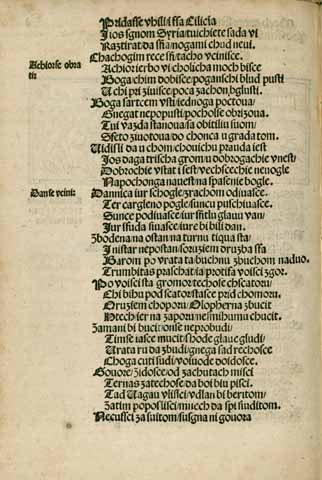 Pridasse vhsili ssa Cilicia
I ios sgnom Syria/tuichiete sada vi
Razstirat da sfia/nogami chud nevi.
Chachogim rece sse/tacho veinisce.
Achiorse obra
ti:
Achior ierbo vi cholicha moch bisce
Boga chim dobisce/poganschi blud pusti
U chi pri ziuisce/poca zachon/bgliusti.
Boga sartcem vsti/iednoga poctoua/
Snegat nepopusti/pochoisse obrizoua.
Tui vazda stanoua/sa obitiliu suom/
Sfeto ziuotoua/do chonca u grada tom.
Uidisli da u chom/chouichiu prauda iest
Ios daga trischa grom/u dobrogachie vnest/
Dobrochie vstat i sest/vechscechie neuogle
Napochonga nauest/na spasenie bogle.
Danse veini:
Dannica iur schogle/zrachom odiuasce.
Ter cargleno pogle/suncu puschiuasce.
Sunce podiuasce/iur sfitlu glauu van/
Iur ssuda siuasce/iure bi bili dan.
Zbodena na ostan na turnu tiqua sta/
I nistar nepostan/sorizieni druzba ssa
Barom po vrata ta/buchnu zbuchom naduo.
Trumbitas praschat/ia protisa voisci zgor.
Po voisci sta gromor/techose chscatoru/
Chi bihu pod scator/stasce prid chomoru.
Oruziem choporu/Olopherna zbucit
Htech ier na zaporu nesmihumu chucit.
Zamani bi bucit/onse neprobudi/
Timse iasce mucit/shode glaue gludi/
Urata ru da zbudi/gnega sad rechosce
Choga cuti sudi/voiuode doidosce.
Gouore/zidosce/od zachutach misci
Ternas zatechosce/da boi biu pisci.
Tad Uagau vlisci/vdlan bi beritom/
Zatim poposlisci/muech da spi siuditom.
Necussci za suitom/susgna ni gouora